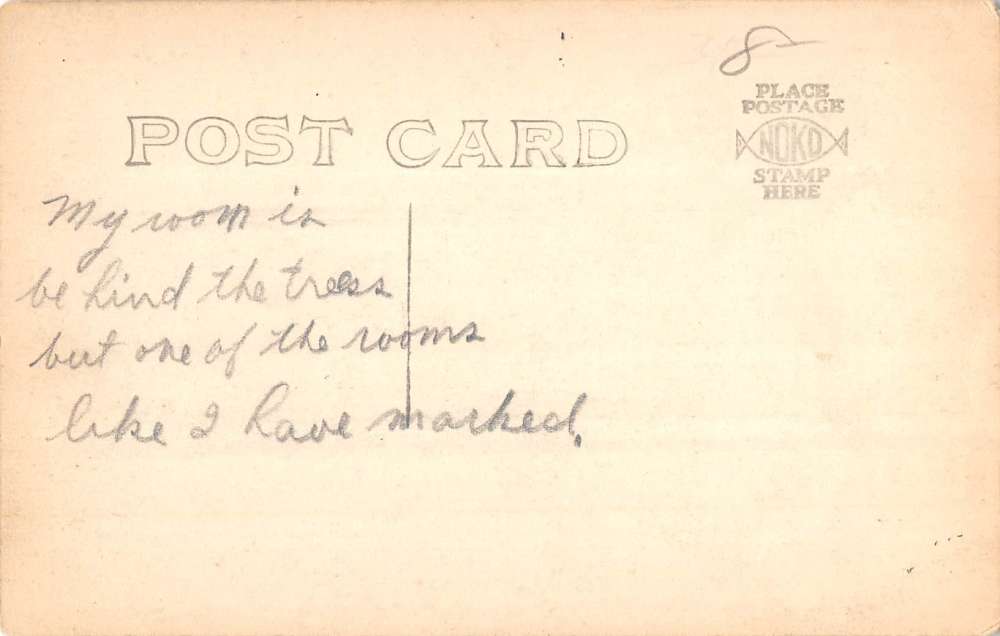 8-
PLACE
POSTAGE
NOKO
STAMP
HERE
POST CARD
My room is
behind the trees
but one of the rooms
like I have marked.